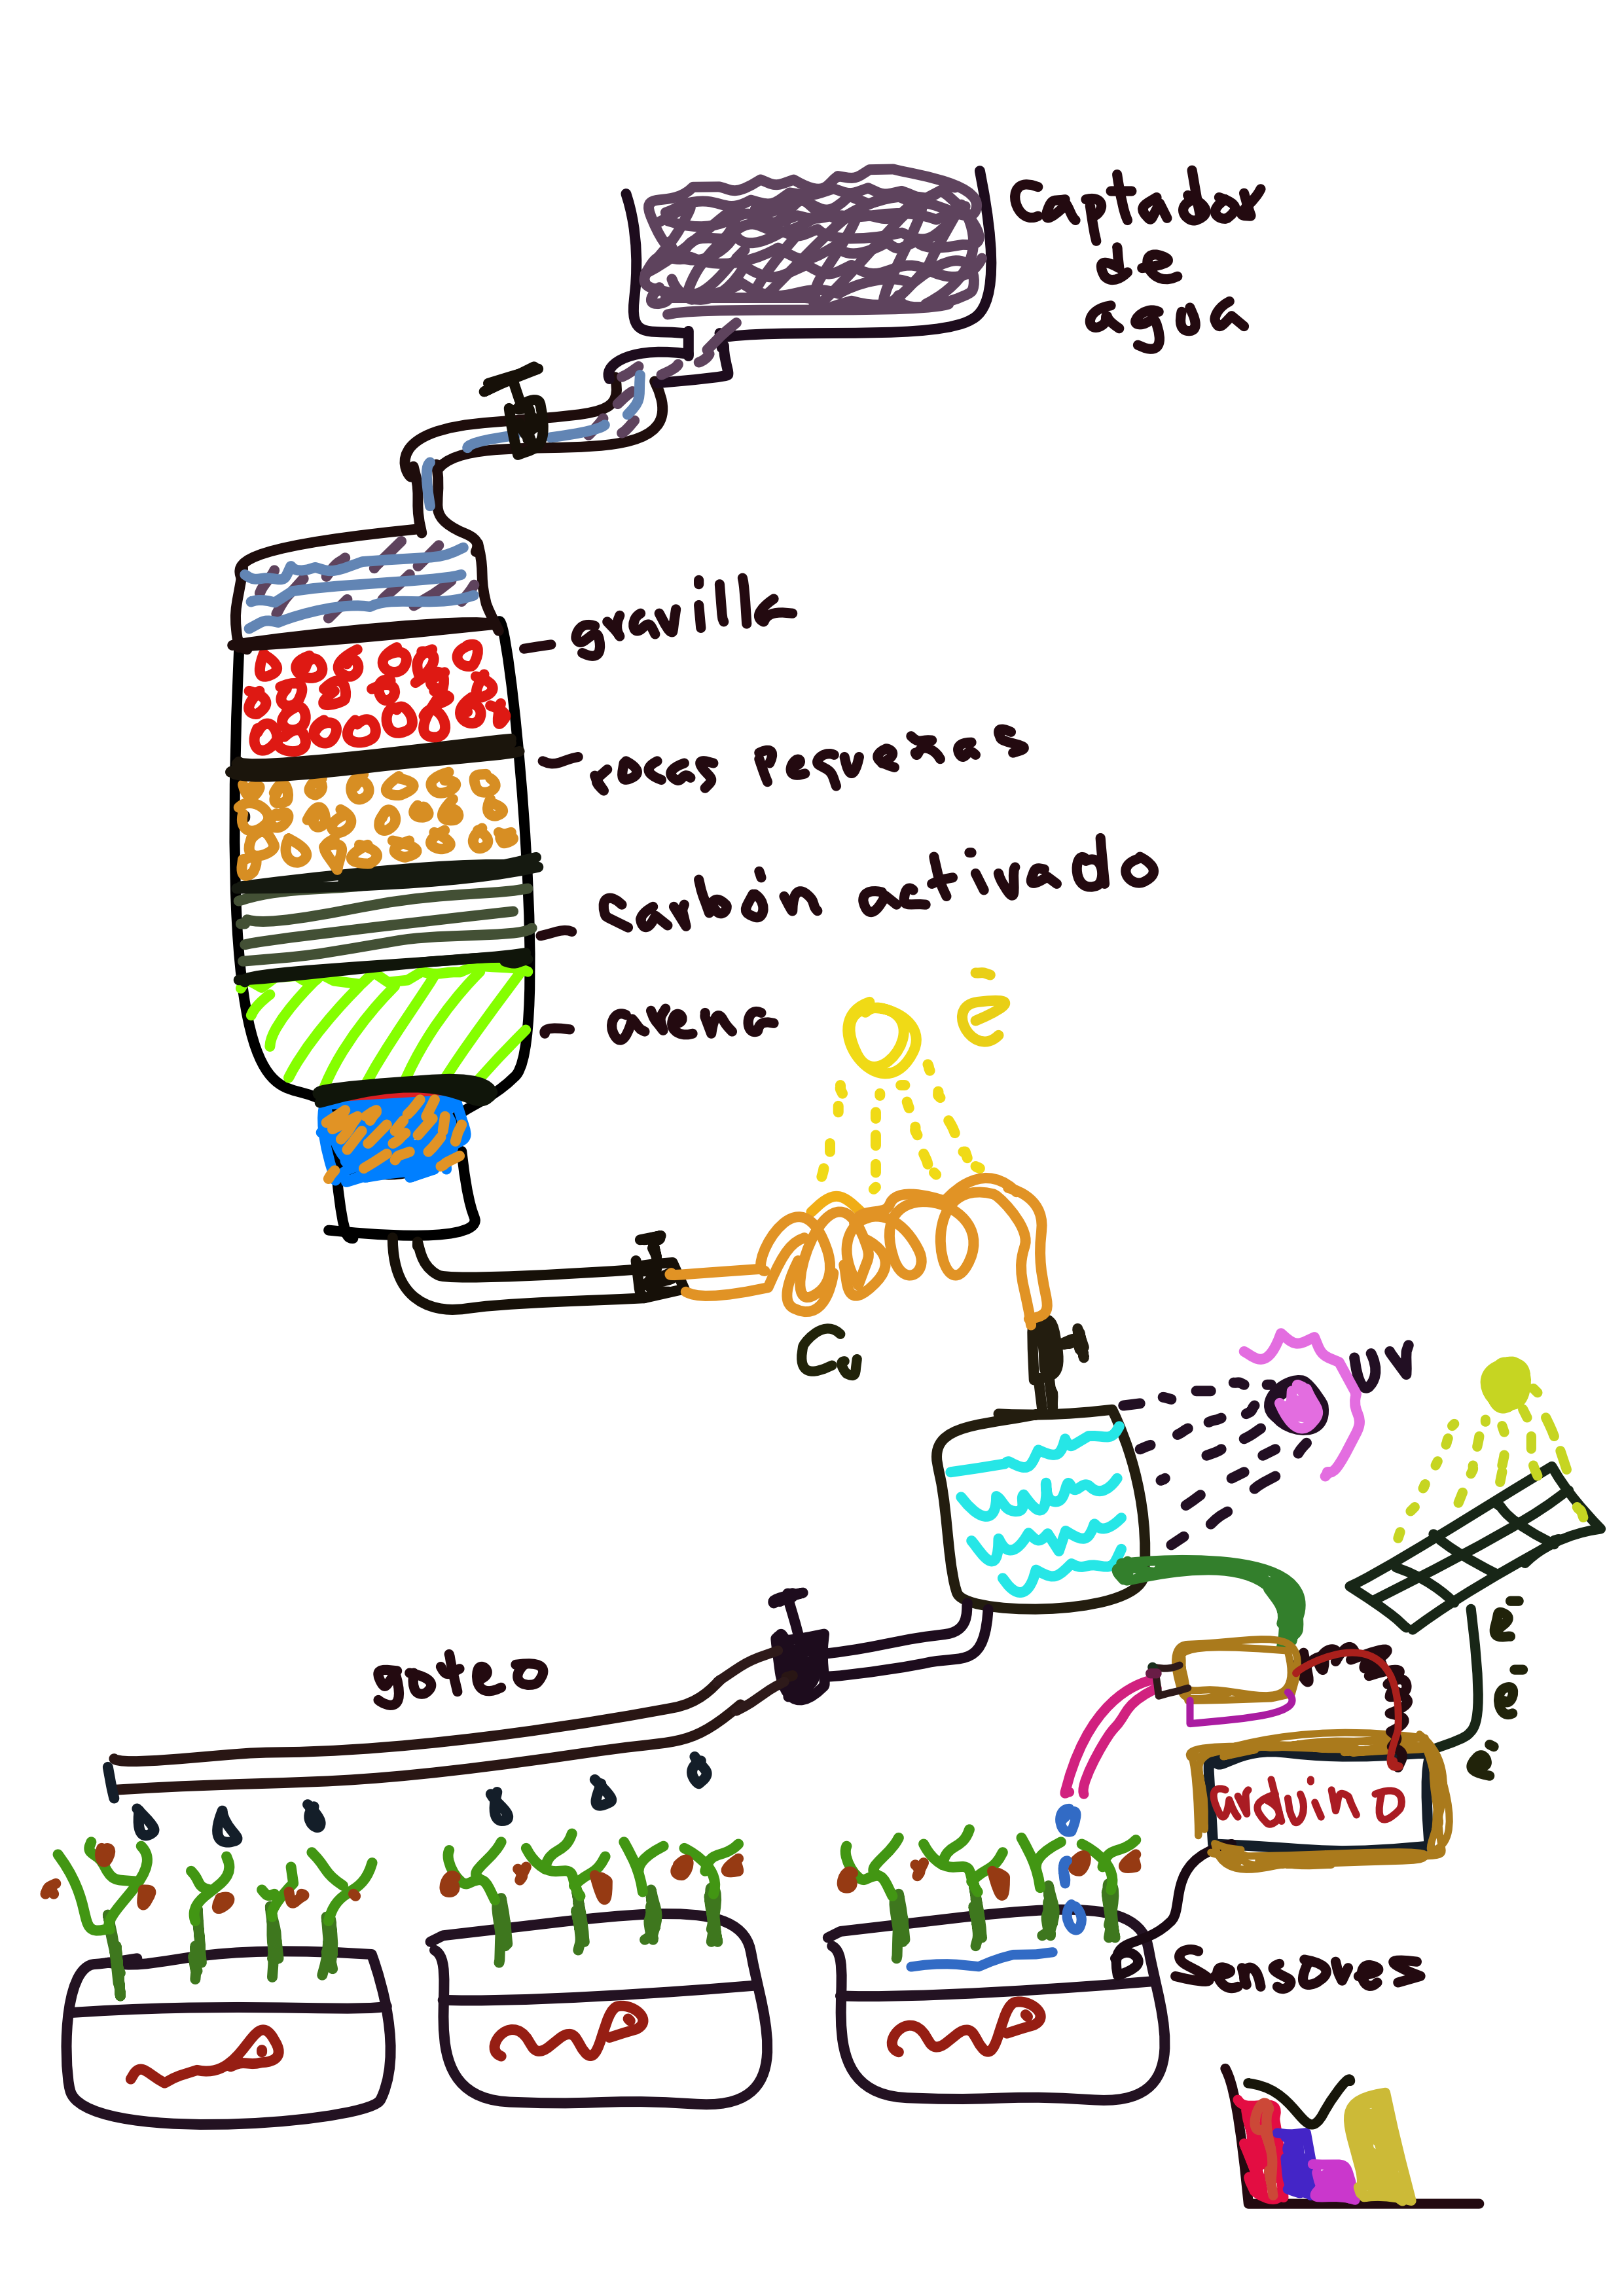 Captador
de
agua
gravilla
rocas pequeñas
carbón activado
arena
ē
Cu
UV
goteo
ē
ē
ē
arduino
Sensores